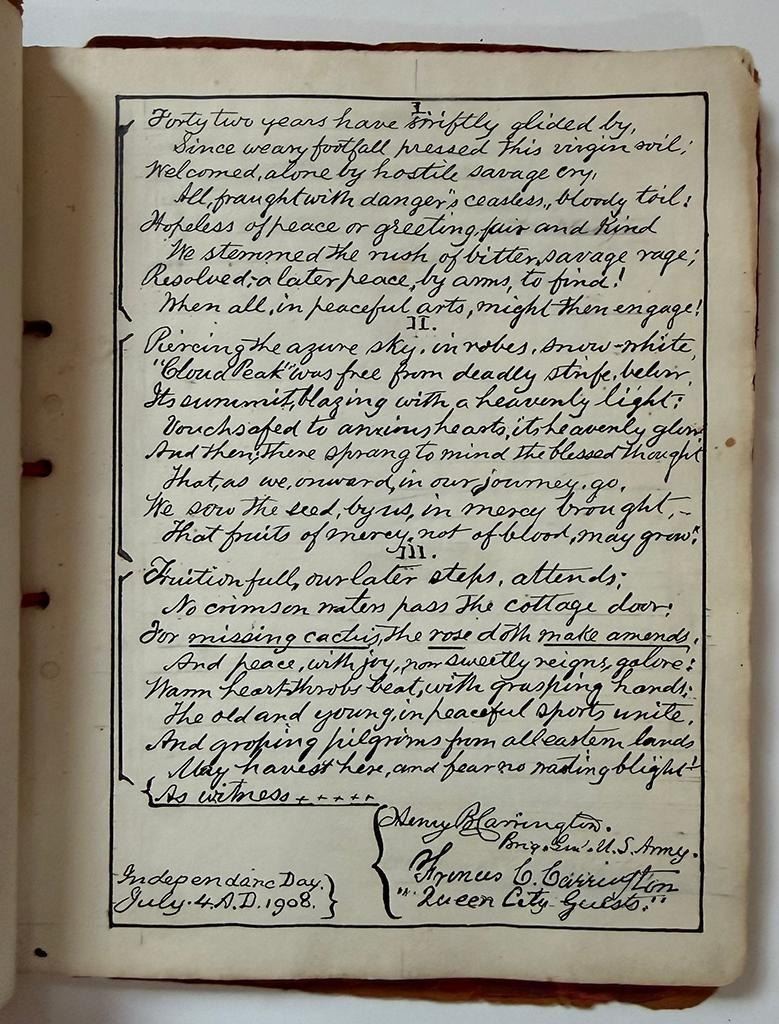 I.
Forty two years have swiftly glided by,
Since weary footfall pressed this virgin soil;
Welcomed, alone by hostile savage cry,
All, fraught with danger's ceasless, bloody toil:
Hopeless of peace or greeting, fair and kind
We stemmed the rush of bitter, savage rage;
Resolved; a later peace, by arms, to find!
When all, in peaceful arts, might then engage!
II.
Piercing the azure sky, in robes, snow-white,
"Cloud Peak" was free from deadly strife, below,
Its summit, blazing with a heavenly light:
Vouchsafed to anxious hearts, its heavenly glow.
And then, there sprang to mind the blessed thought
That, as we, onward, in our journey, go,
We sow the seed, by us, in mercy brought, -
That fruits of mercy, not of blood, may grow".
III.
Fruition full, our later steps, attends;
No crimson waters pass the cottage door:
For missing cactus, the rose doth make amends,
And peace, with joy, now sweetly reigns, galore:
Warm heart throbs beat, with grasping hands;
The old and young, in peaceful sports unite,
And groping pilgrims from all eastern lands
May havest here, and fear no wading blight!
As witness + + + + +
Henry B Carrington.
Brig. Gen'. U. S. Army.
Frances C. Carrington
"Queen City Guests."
Independanc Day.
July. 4. A.D. 1908.